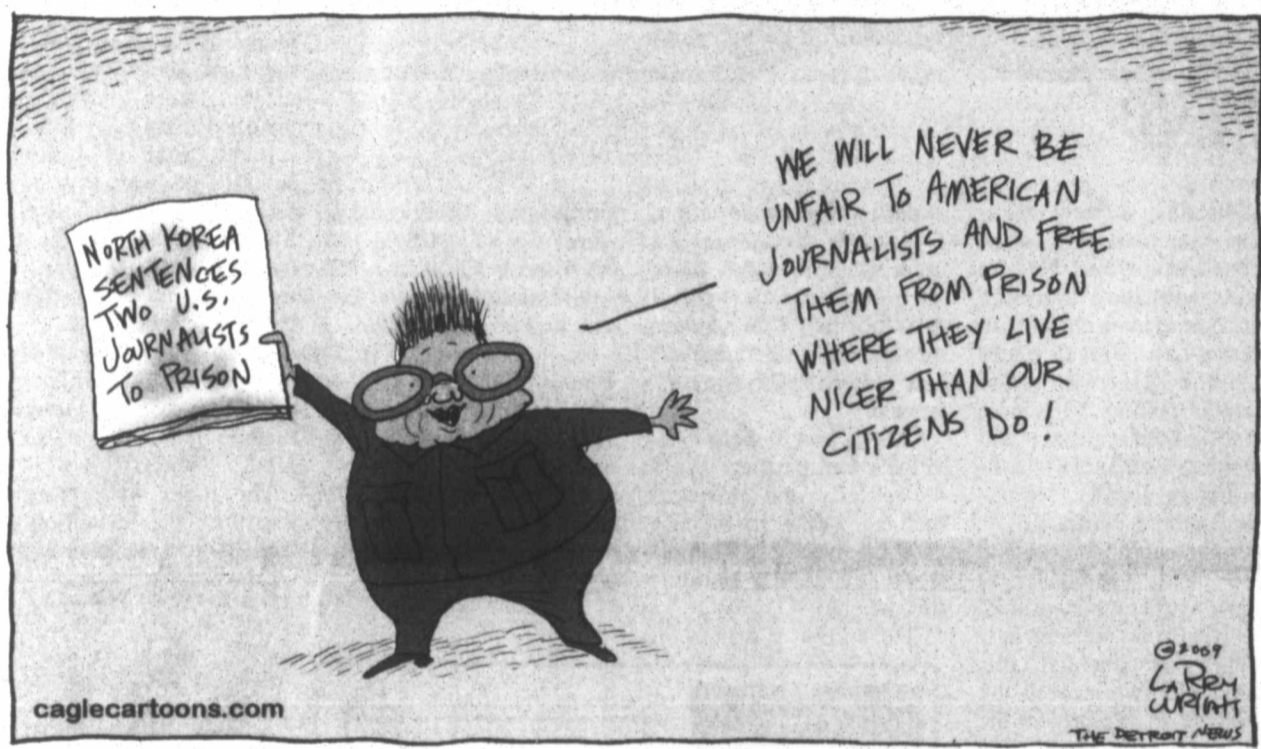 NORTH KOREA
SENTENCES
TWO U.S.
JOURNALISTS
TO PRISON
WE WILL NEVER BE
UNFAIR TO AMERICAN
JOURNALISTS AND FREE
THEM FROM PRISON
WHERE THEY LIVE
NICER THAN OUR
CITIZENS DO!
©2009
LARRY
WRIGHT
THE DETROIT NEWS
caglecartoons.com